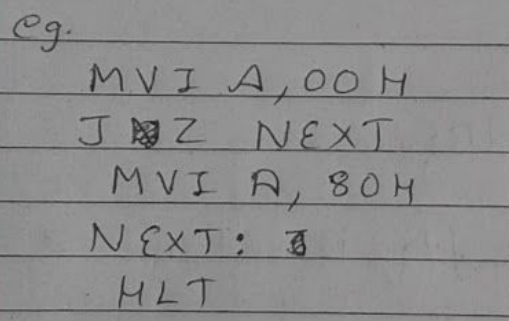 eg.
MVI A, 00H
J Z NEXT
MVI A, 80H
NEXT:
HLT